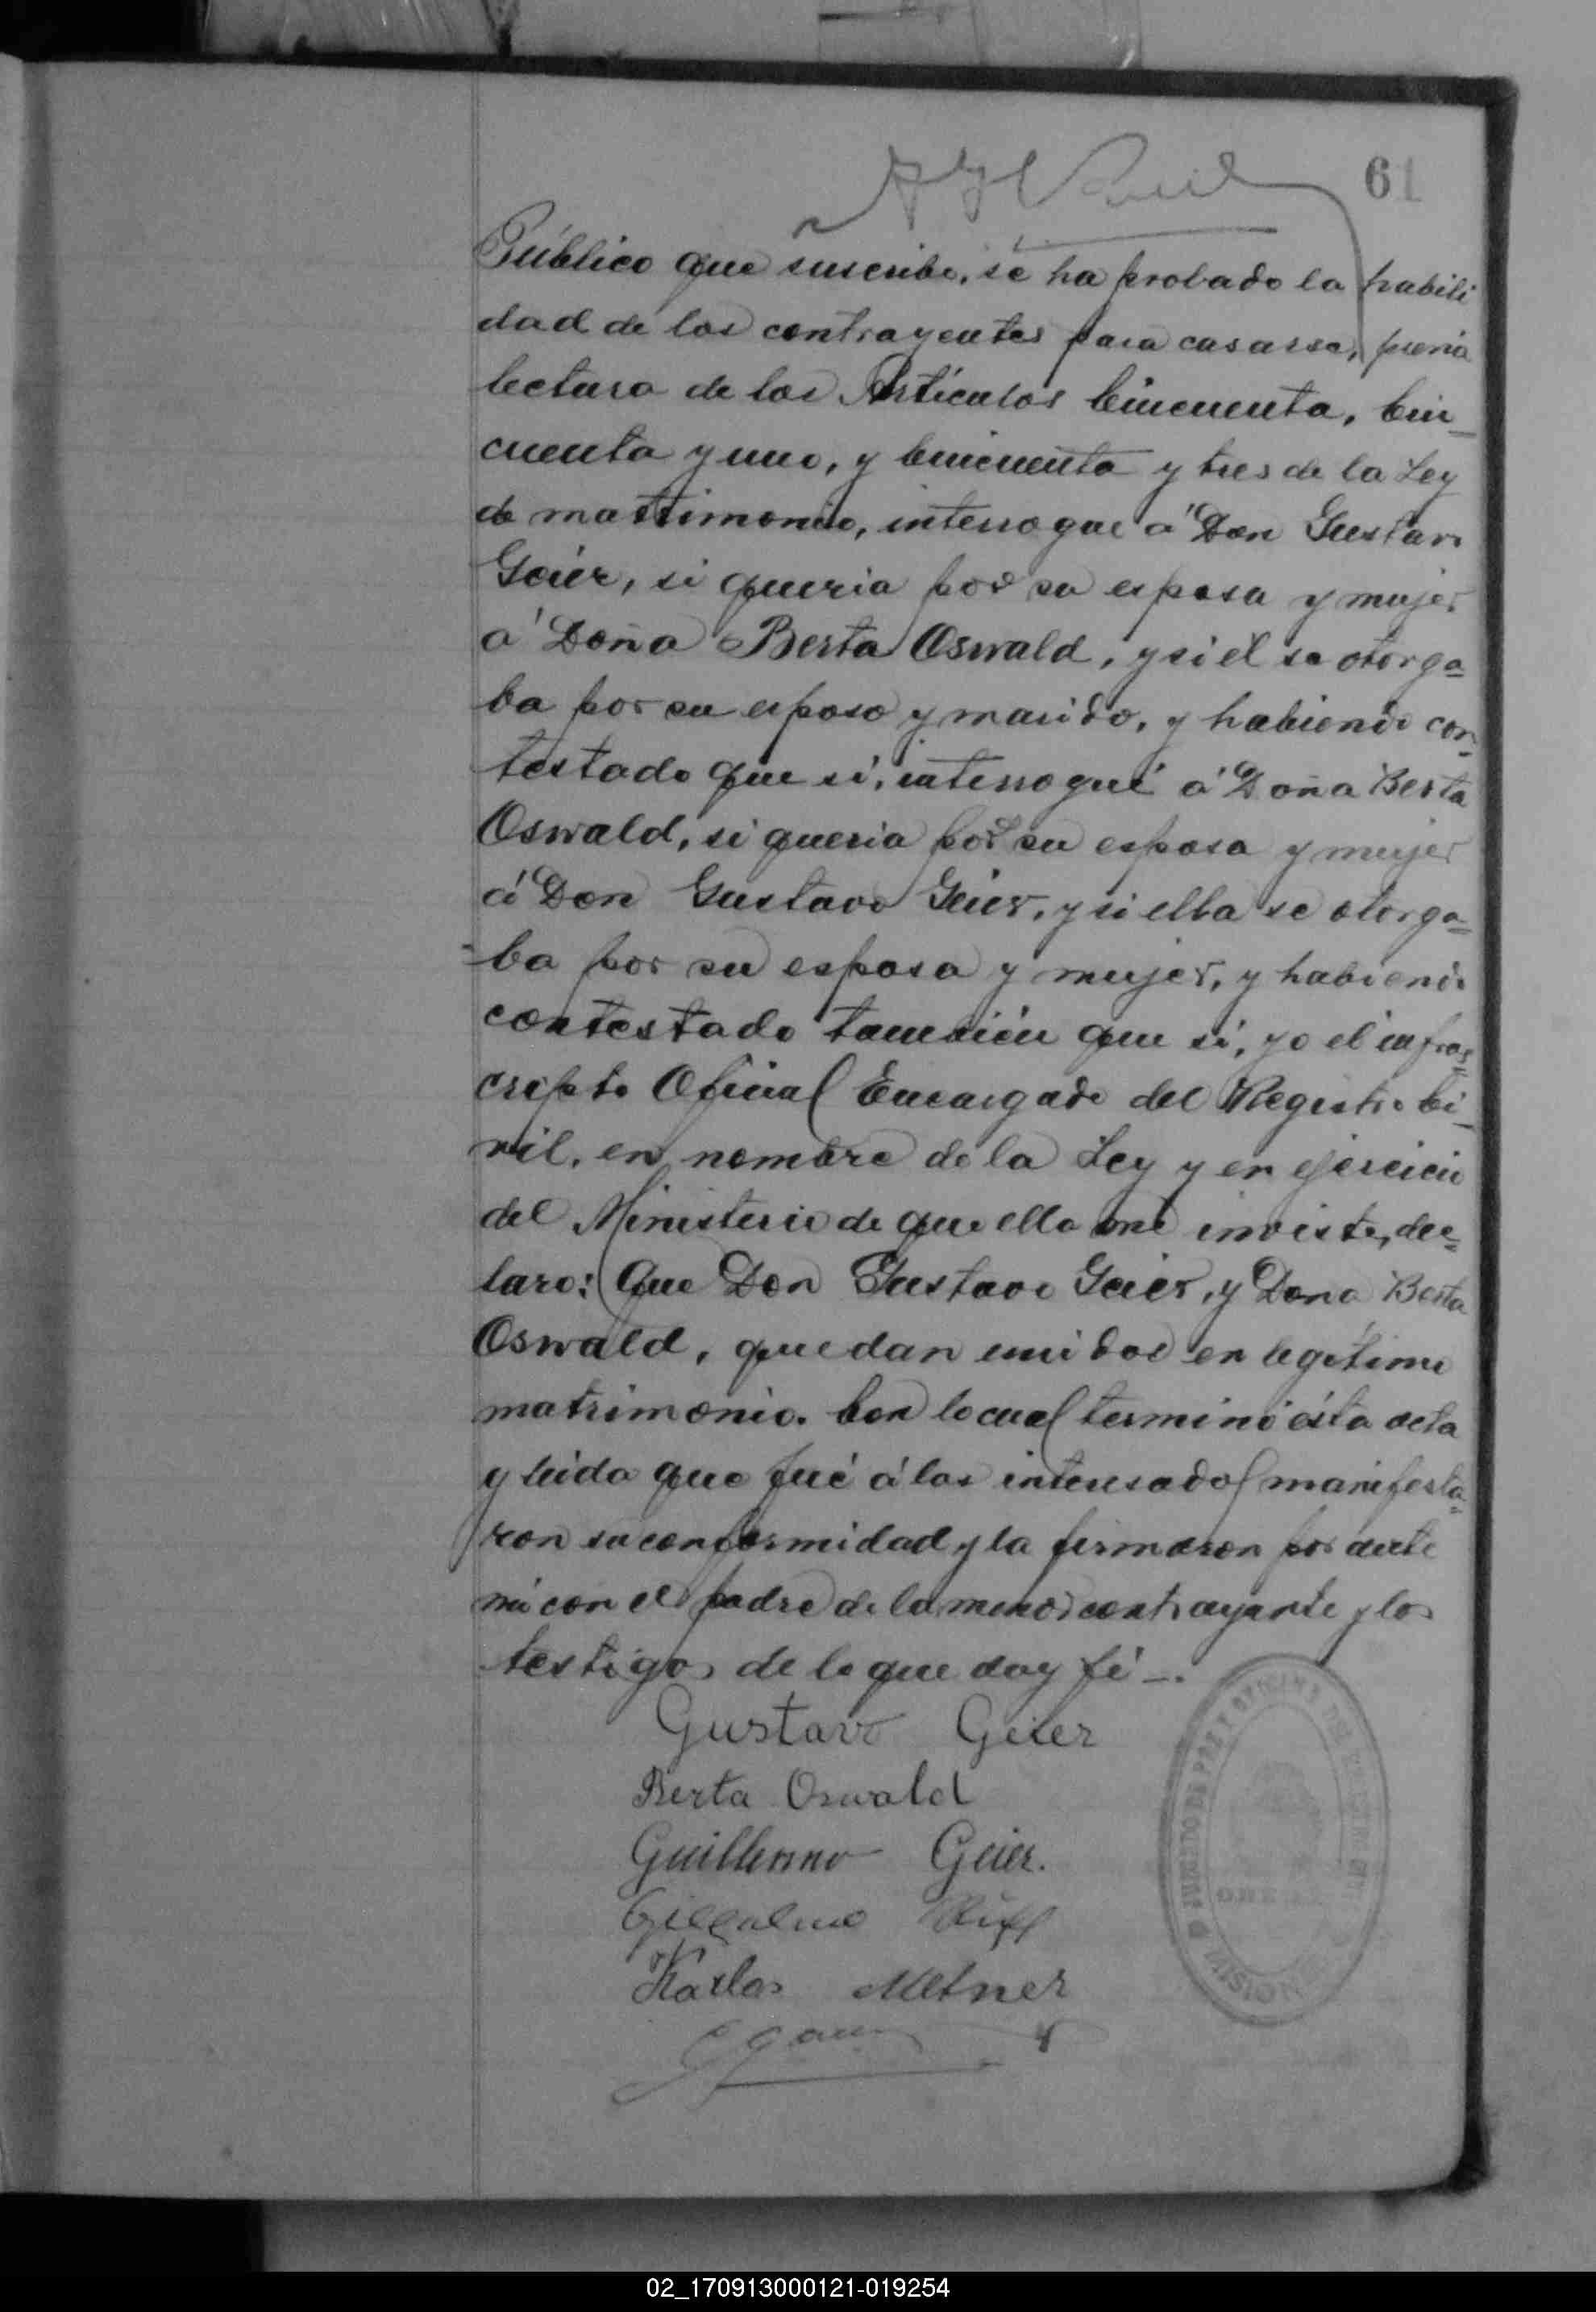 61
Público que suscribe, se ha probado la habili
dad de los contrayentes para casarse, previa
lectura de los Artículos Cincuenta, Cin_
cuenta y uno, y Cincuenta y tres de la Ley
de matrimonio, interrogue á Don Gustavo
Geier, si queria por su esposa y mujer
á Doña Berta Oswald, y si él se otorga=
ba por su esposo y marido, y habiendo con=
testado que si, interrogué á Doña Berta
Oswald, si queria por su esposa y mujer
á Don Gustavo Geier, y si ella se otorga=
=ba por su esposa y mujer, y habiendo
contestado también que sí, yo el infras=
cripto Oficial Encargado del Registro Ci_
vil, en nombre de la Ley y en ejercicio
del Ministerio de que ella me inviste, dec=
laro: Que Don Gustavo Geier, y Dona Berta
Oswald, quedan unidos en legítimo
matrimonio. Con lo cual terminó ésta acta
y leida que fué á los interesados manifesta=
ron su conformidad y la firmaron por ante
mi con el padre de la menor contrayente y los
testigos de lo que doy fé _.
Gustavo Geier
Berta Oswald
Guillermo Geier.
Karlos Metner
JUZGADO DE PAZ Y OFICINA DEL REGISTRO CIVIL
MISIONES
02_170913000121-019254